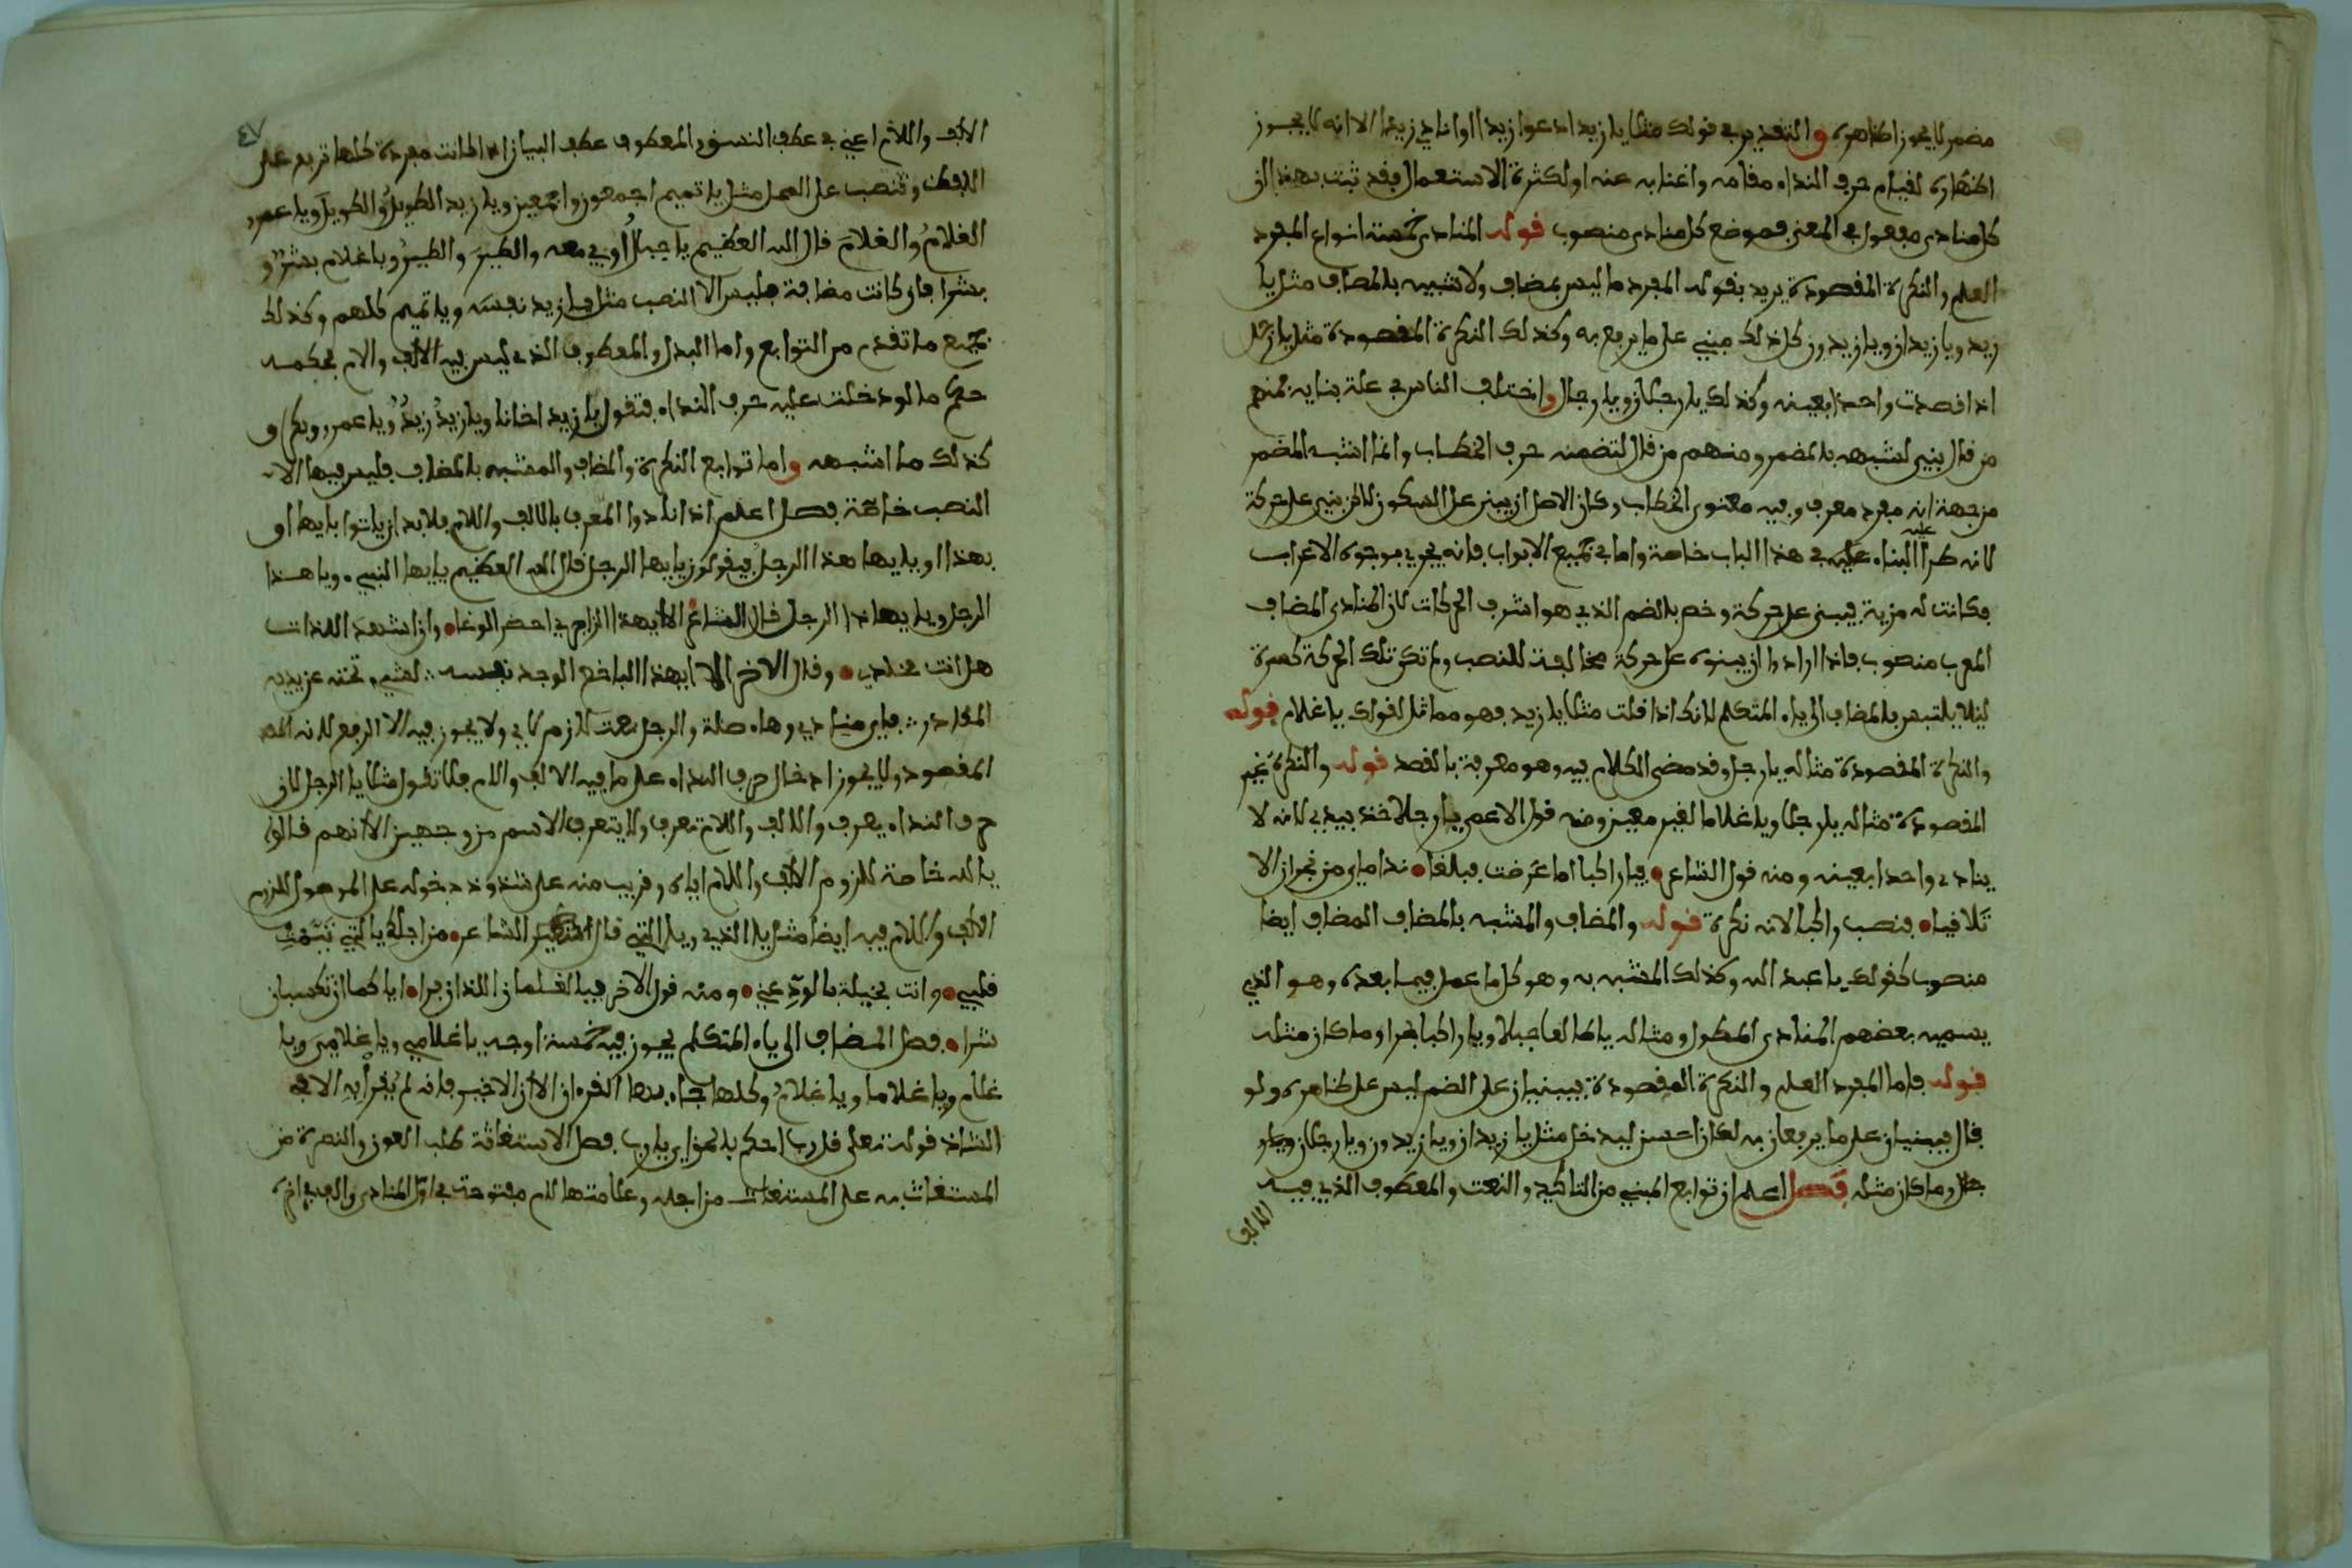 مضمر لا يجوز اظهاره والتقدير في قولك مثلا يا زيد ادعوا زيدا او انادي زيدا الا انه لا يجوز
اظهاره لقيام حرف النداء مقامه واغنايه عنه او لكثرة الاستعمال فقد ثبت بهذا ان
كل منادى مفعول في المعنى فموضع كل منادى منصوب قوله المنادى خمسة انواع المفرد
العلم والنكرة المقصودة يريد بقوله المفرد ما ليس بمضاف ولا شبيه بالمضاف مثل يا
زيد ويا زيدان ويا زيدون كل ذلك مبني على ما يرفع به وكذلك النكرة المقصودة مثل يا رجل
اذا قصدت واحدا بعينه وكذلك يا رجلان ويا رجال واختلف الناس في علة بنايه فمنهم
من قال بني لشبهه بالمضمر ومنهم من قال لتضمنه حرف الخطاب وانما اشبه المضمر
من جهة انه مفرد معرف وفيه معنى الخطاب وكان الاصل ان يبنى على السكون لاكن بني على حركة
لانه طرأ البناء عليه في هذا الباب خاصة واما في جميع الابواب فانه يجري بوجوه الاعراب
فكانت له مزية فبني على حركة وخص بالضم الذي هو اشرف الحركات لان المنادى المضاف
المعرب منصوب فاذا ارادوا ان يبنوه على حركة مخالفة للنصب ولم تكن تلك الحركة كسرة
ليلا يلتبس بالمضاف الى ياء المتكلم لانك اذا قلت مثلا يا زيد فهو مماثل لقولك يا غلام قوله
والنكرة المقصودة مثاله يا رجل وقد مضى الكلام فيه وهو معرفة بالقصد قوله والنكرة غير
المقصودة مثاله يا رجلا ويا غلاما لغير معين ومنه قول الاعمى يا رجلا خذ بيدي لانه لا
ينادي واحدا بعينه ومنه قول الشاعر فيا راكبا اما عرضت فبلغا نداماي من نجران الا
تلاقيا فنصب راكبا لانه نكرة قوله والمضاف والمشبه بالمضاف المضاف ايضا
منصوب كقولك يا عبد الله وكذلك المشبه به وهو كل ما عمل فيما بعده وهو الذي
يسميه بعضهم المنادى المطول ومثاله يا طالعا جبلا ويا راكبا بحرا وما كان مثله
قوله فاما المفرد العلم والنكرة المقصودة فيبنيان على الضم ليس على ظاهره ولو
قال فيبنيان على ما يرفعان به لكان احسن ليدخل مثل يا زيدان ويا زيدون ويا رجلان ويا ر
جال وما كان مثله فصل اعلم ان توابع المبني من التاكيد والنعت والمعطوف الذي فيه
الالف
٤٧
الالف واللام اعني في عطف النسق والمعطوف عطف البيان اذا كانت مفردة كلها ترفع على
اللفظ وتنصب على المحل مثل يا تميم اجمعون واجمعين ويا زيد الطويل والطويل ويا عمرو
الغلامُ والغلامَ قال الله العظيم يا جبال اوبي معه والطيرَ والطيرُ ويا غلام بشر و
بشرا فان كانت مضافة فليس الا النصب مثل يا زيد نفسه ويا تميم كلهم وكذلك
جميع ما تقدم من التوابع واما البدل والمعطوف الذي ليس فيه الالف والام فحكمه
حكم ما لو دخلت عليه حرف النداء فتقول يا زيد اخانا ويا زيد زيد ويا عمرو وبكر و
كذلك ما اشبهه واما توابع النكرة والمضاف والمشبه بالمضاف فليس فيها الا
النصب خاصة فصل اعلم اذا نادوا المعرف بالالف واللام فلا بد ان ياتوا بايها او
بهذا او بايها هذا الرجل فيقولون يا يها الرجل قال الله العظيم يا يها النبي ويا هذا
الرجل ويا يها ذا الرجل قال الشاعر الا ايهذا الزاجري احضر الوغا وان اشهد اللذات
هل انت مخلدي وقال الاخر الا ايهذا الباخع الوجد نفسه لشيء نحته عن يديه
المقادر فاي منادى وهاء صلة والرجل نعت لازم لاي ولا يجوز فيه الا الرفع لانه
المقصود ولا يجوز ادخال حرف النداء على ما فيه الالف واللام فلا تقول مثلا يا الرجل لان
حرف النداء يعرف والالف واللام تعرف ولا يتعرف الاسم من وجهين الا انهم قالوا
يا الله خاصة للزوم الالف واللام اياه وقريب منه على شذوذ دخوله على الموصول للزوم
الالف واللام فيه ايضا مثل يا الذي ويا التي قال الشاعر من اجلك يا التي تيمت
قلبي وانت بخيلة بالود عني ومنه قول الاخر فيا الغلامان اللذان فرا اياكما ان تكسبان
شرا فصل المضاف الى ياء المتكلم يجوز فيه خمسة اوجه يا غلامي ويا غلامي ويا
غلام ويا غلاما ويا غلام وكلها جاء بها القرءان الا ان الاخير فانه لم يقرأ به الا في
الشاذ قوله تعلى قل رب احكم بالحق اي يا رب فصل الاستغاثة طلب العون والنصرة من
المستغاث به على المستغاث من اجله وعلامتها لام مفتوحة في اول المنادى والف في اخره